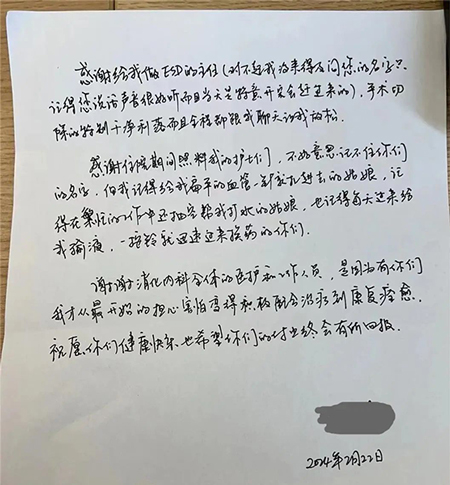 感谢给我做ESD的主任(对不起我没来得及问您的名字只
记得您说话声音很好听而且当天是特意开完会赶过来的),手术切
除的特别干净利落而且全程都跟我聊天让我放松.
感谢住院期间照料我的护士们,不好意思记不住你们
的名字,但我记得给我扁平的血管一针就扎进去的姑娘,记
得在繁忙的工作中还抽空帮我打水的姑娘,也记得每天过来给
我输液,一按铃就迅速过来换药的你们.
谢谢消化内科全体的医护和工作人员,是因为有你们
我才从最开始的担心害怕变得积极配合治疗到康复痊愈.
祝愿你们健康快乐也希望你们的付出终会有所回报.
2024年2月22日